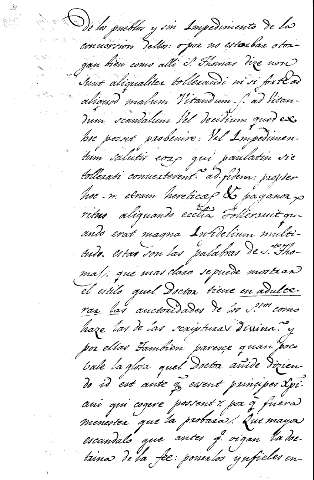 de los pueblos y sin Impedimento de la
concession dello: o por no estorbar otro
gran bien como alli S. Thomas dize non
sunt aliqualiter tollerandi nisi forte ad
aliquod malum vitandum s. ad vitan
dum scandalum vel decidium quod ex
hoc posset probenire: vel Impedimen
tum salutis eorum qui paulatim sic
tollerati converterentur ad fidem: propter
hoc enim hereticorum & paganorum
ritus aliquando ecclesia tolleravit qu
ando erat magna Infidelium multi
tudo. estas son las palabras de S. Tho
mas. que mas claro se puede mostrar
el estilo quel Doctor tiene en adulte
rar las auctoridades de los S.tos como
haze las de las scripturas divinas y
por ellas tambien pareçe quan poco
vale la glosa quel Doctor añide dizien
do id est ante quam essent principes xpi
ani qui cogere possent: porque fuera
menester que la probara. Que mayor
escandalo que antes que oigan la doc
trina de la fee: ponerlos ynfieles en